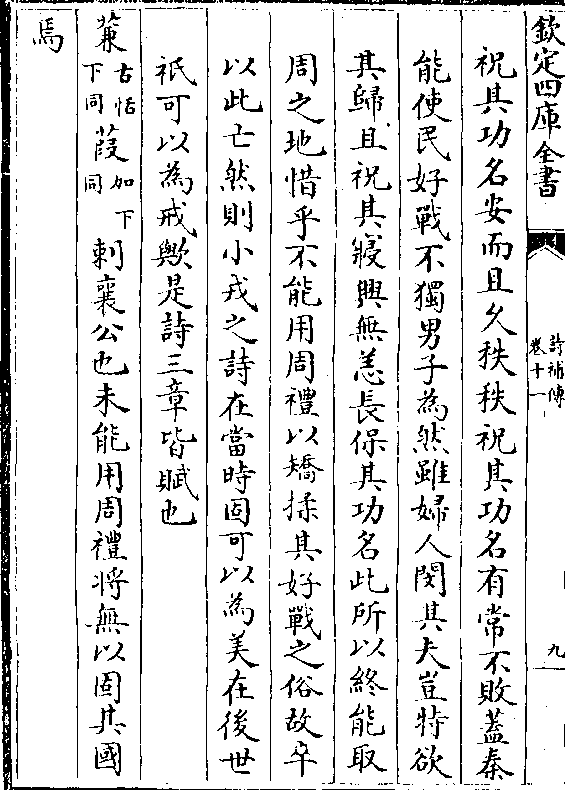 欽定四庫全書
詩補傳
卷十一
九
祝其功名安而且久秩秩祝其功名有常不敗蓋秦
能使民好戰不獨男子為然雖婦人閔其夫豈特欲
其歸且祝其寢興無恙長保其功名此所以終能取
周之地惜乎不能用周禮以矯揉其好戰之俗故卒
以此亡然則小戎之詩在當時固可以為美在後世
祇可以為戒歟是詩三章皆賦也
蒹古恬下同葭加下同刺襄公也未能用周禮將無以固其國
焉